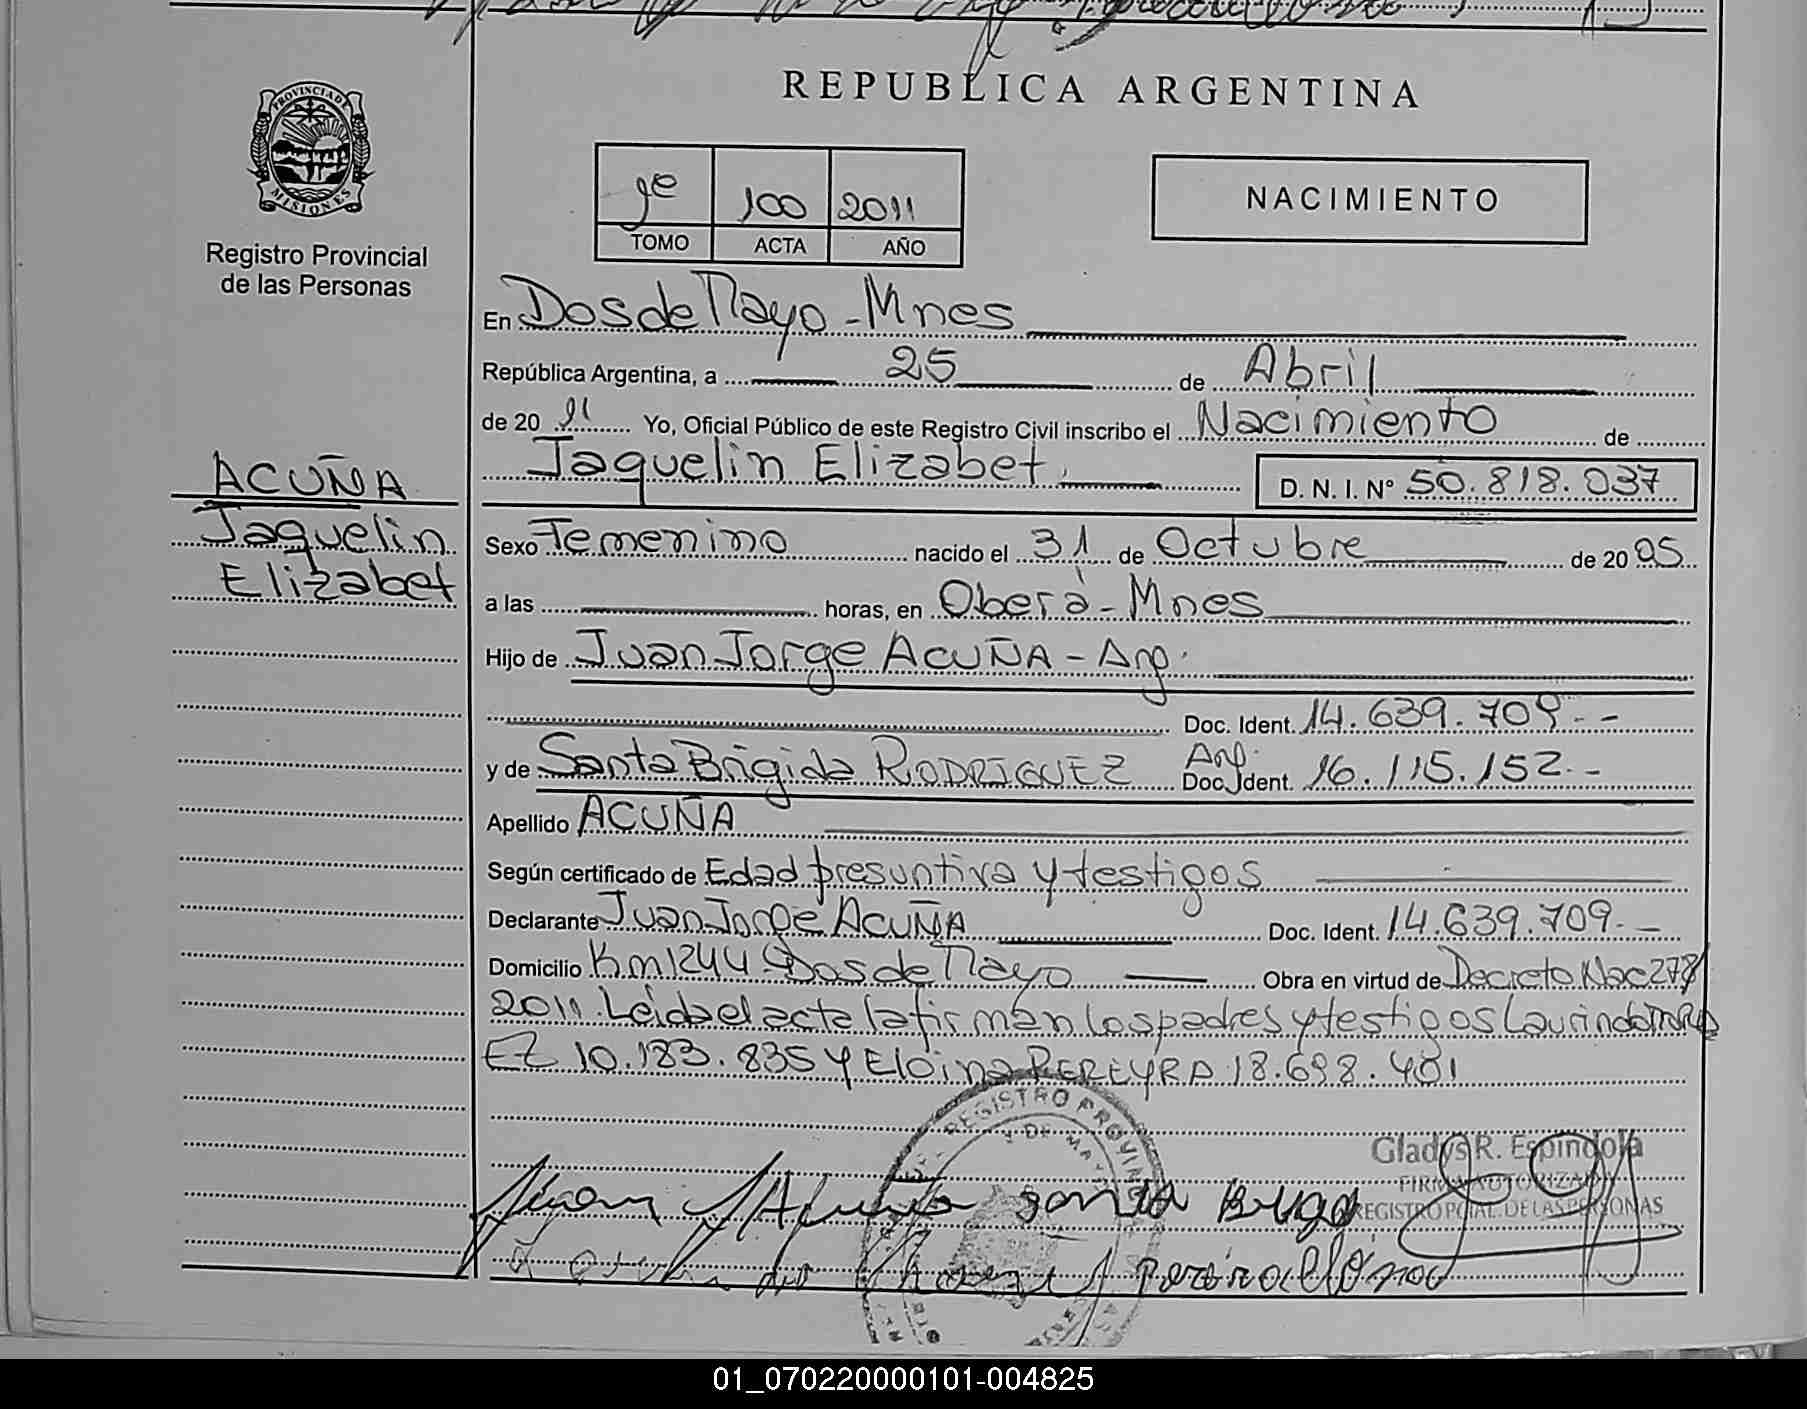 REPUBLICA ARGENTINA
PROVINCIA DE
MISIONES
Registro Provincial
de las Personas
1º 100 2011
TOMO ACTA AÑO
NACIMIENTO
En Dos de Mayo - Mnes
República Argentina, a 25 de Abril
de 20 11 Yo, Oficial Público de este Registro Civil inscribo el Nacimiento de
Jaquelin Elizabet D. N. I. Nº 50.818.037
ACUÑA
Jaquelin
Elizabet
Sexo Femenino nacido el 31 de Octubre de 20 05
a las horas, en Oberá - Mnes
Hijo de Juan Jorge ACUÑA - Arg.
Doc. Ident. 14.639.709 - -
y de Santa Brigida RODRIGUEZ Arg. Doc. Ident. 16.115.152. -
Apellido ACUÑA
Según certificado de Edad presuntiva y testigos
Declarante Juan Jorge ACUÑA Doc. Ident. 14.639.709. -
Domicilio Km 1244 Dos de Mayo Obra en virtud de Decreto Nac 278/
2011. Leida el acta la firman los padres y testigos Laurindo
EZ 10.183.835 y Eloina PEREYRA 18.698.401
REGISTRO PROVIN
2 DE MAYO
Gladys R. Espindola
FIRMA AUTORIZADA
REGISTRO PCIAL. DE LAS PERSONAS
Juan J Acuña Santa
01_070220000101-004825